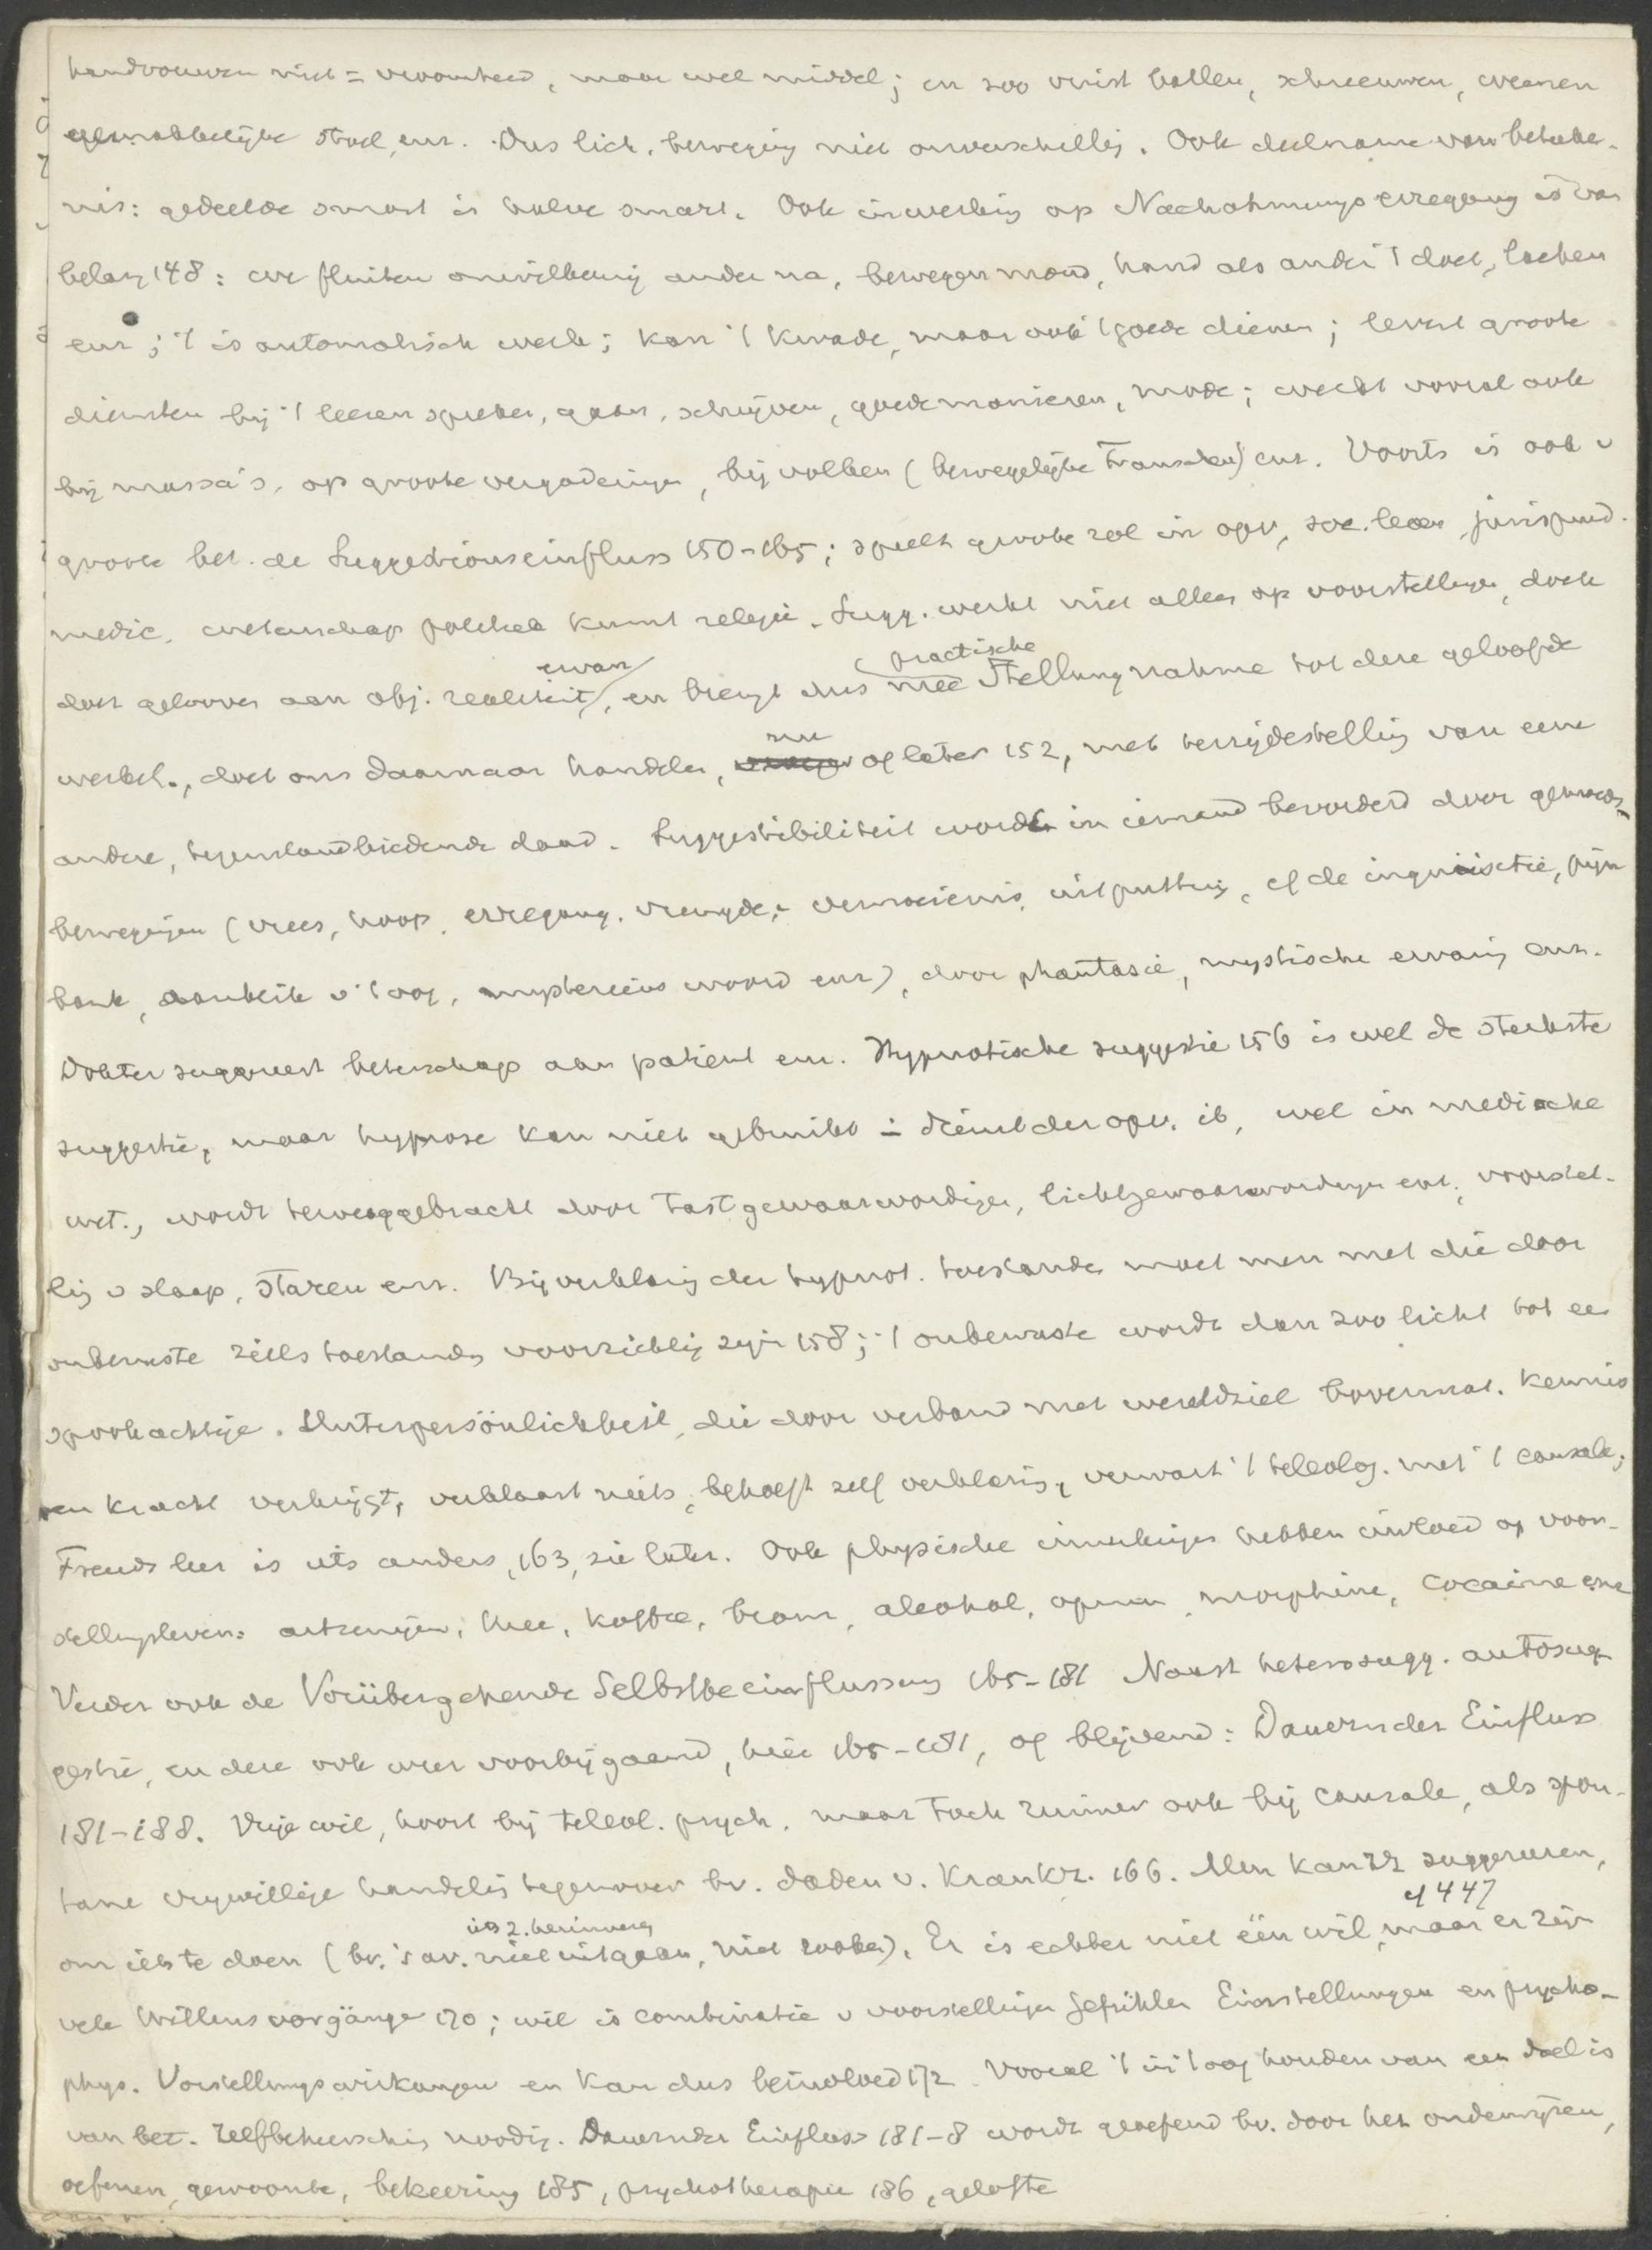 handvouwen niet = vroomheid, maar wel middel; en zoo vuist ballen, schreeuwen, weenen
gemakkelijke stoel, enz. Dus lich. beweging niet onverschillig. Ook deelname van beteeke-
nis: gedeelde smart is halve smart. Ook inwerking op Nachahmungserregung is van
belang 148: we fluiten onwillekeurig ander na, bewegen mond, hand als ander 't doet, lachen
enz; 't is automatisch werk; kan 't kwade, maar ook 't goede dienen; levert groote
diensten bij 't leeren spreken, gaan, schrijven, goede manieren, mode; werkt vooral ook
bij massa's, op groote vergaderingen, bij volken (bewegelijke Franschen) enz. Voorts is ook v
groote bet. de Suggestionseinfluss 150-165; speelt groote rol in opv, soc. leven, jurisprud.
medic. wetenschap politiek kunst religie. Sugg. werkt niet alleen op voorstellingen, doch
doet gelooven aan obj. realiteit ervan, en brengt dus mee practische Stellungnahme tot deze geloofde
werkel., doet ons daarnaar handelen, nu of later 152, met terzijdestelling van eene
andere, tegenstandbiedende daad. Suggestibiliteit wordt in iemand bevorderd door gemoeds-
bewegingen (vrees, hoop, erregung, vreugde, vermoeienis, uitputting, cf de inquisitie, pijn
bank, aanblik v 't oog, mysterieus woord enz), door phantasie, mystische ervaring enz.
Dokter suggereert beterschap aan patient enz. Hypnotische suggestie 156 is wel de sterkste
suggestie, maar hypnose kan niet gebruikt in dienst der opv. ib, wel in medische
wet., wordt teweeggebracht door tastgewaarwordingen, lichtgewaarwordingen enz., voorstel-
ling v slaap, staren enz. Bij verklaring der hypnot. toestanden moet men met die door
onbewuste zielstoestanden voorzichtig zijn 158; 't onbewuste wordt dan zoo licht tot een
spookachtige Unterpersönlichkeit, die door verband met wereldziel bovennat. kennis
en kracht verkrijgt, verklaart niets, behoeft zelf verklaring, verwart 't teleolog. met 't causale;
Freuds leer is iets anders, 163, zie later. Ook physische inwerkingen hebben invloed op voor-
stellingsleven: artzenijen, thee, koffie, broom, alcohol, opium, morphine, cocaine enz
Verder ook de Vorübergehende Selbstbeeinflussung 165-181 Naast heterosugg. autosug-
gestie, en deze ook weer voorbijgaand, hier 165-181, of blijvend: Dauernder Einfluss
181-188. Vrije wil, hoort bij teleol. psych. maar toch ruimer ook bij causale, als spon-
tane vrijwillige handeling tegenover bv. daden v. krankz. 166. Men kan zz suggereeren,
om iets te doen (bv. 's av. niet uitgaan, niet rooken). Er is echter niet één wil, maar er zijn cf 447
vele Willensvorgänge 170; wil is combinatie v voorstellingen Gefühlen Einstellungen en psycho-
phys. Vorstellungswirkungen en kan dus beïnvloed 172. Vooral 't in 't oog houden van een doel is
van bet. Zelfbeheersching noodig. Dauernder Einfluss 181-8 wordt geoefend bv. door het onderwijzen,
oefenen, gewoonte, bekeering 185, psychotherapie 186, gelofte